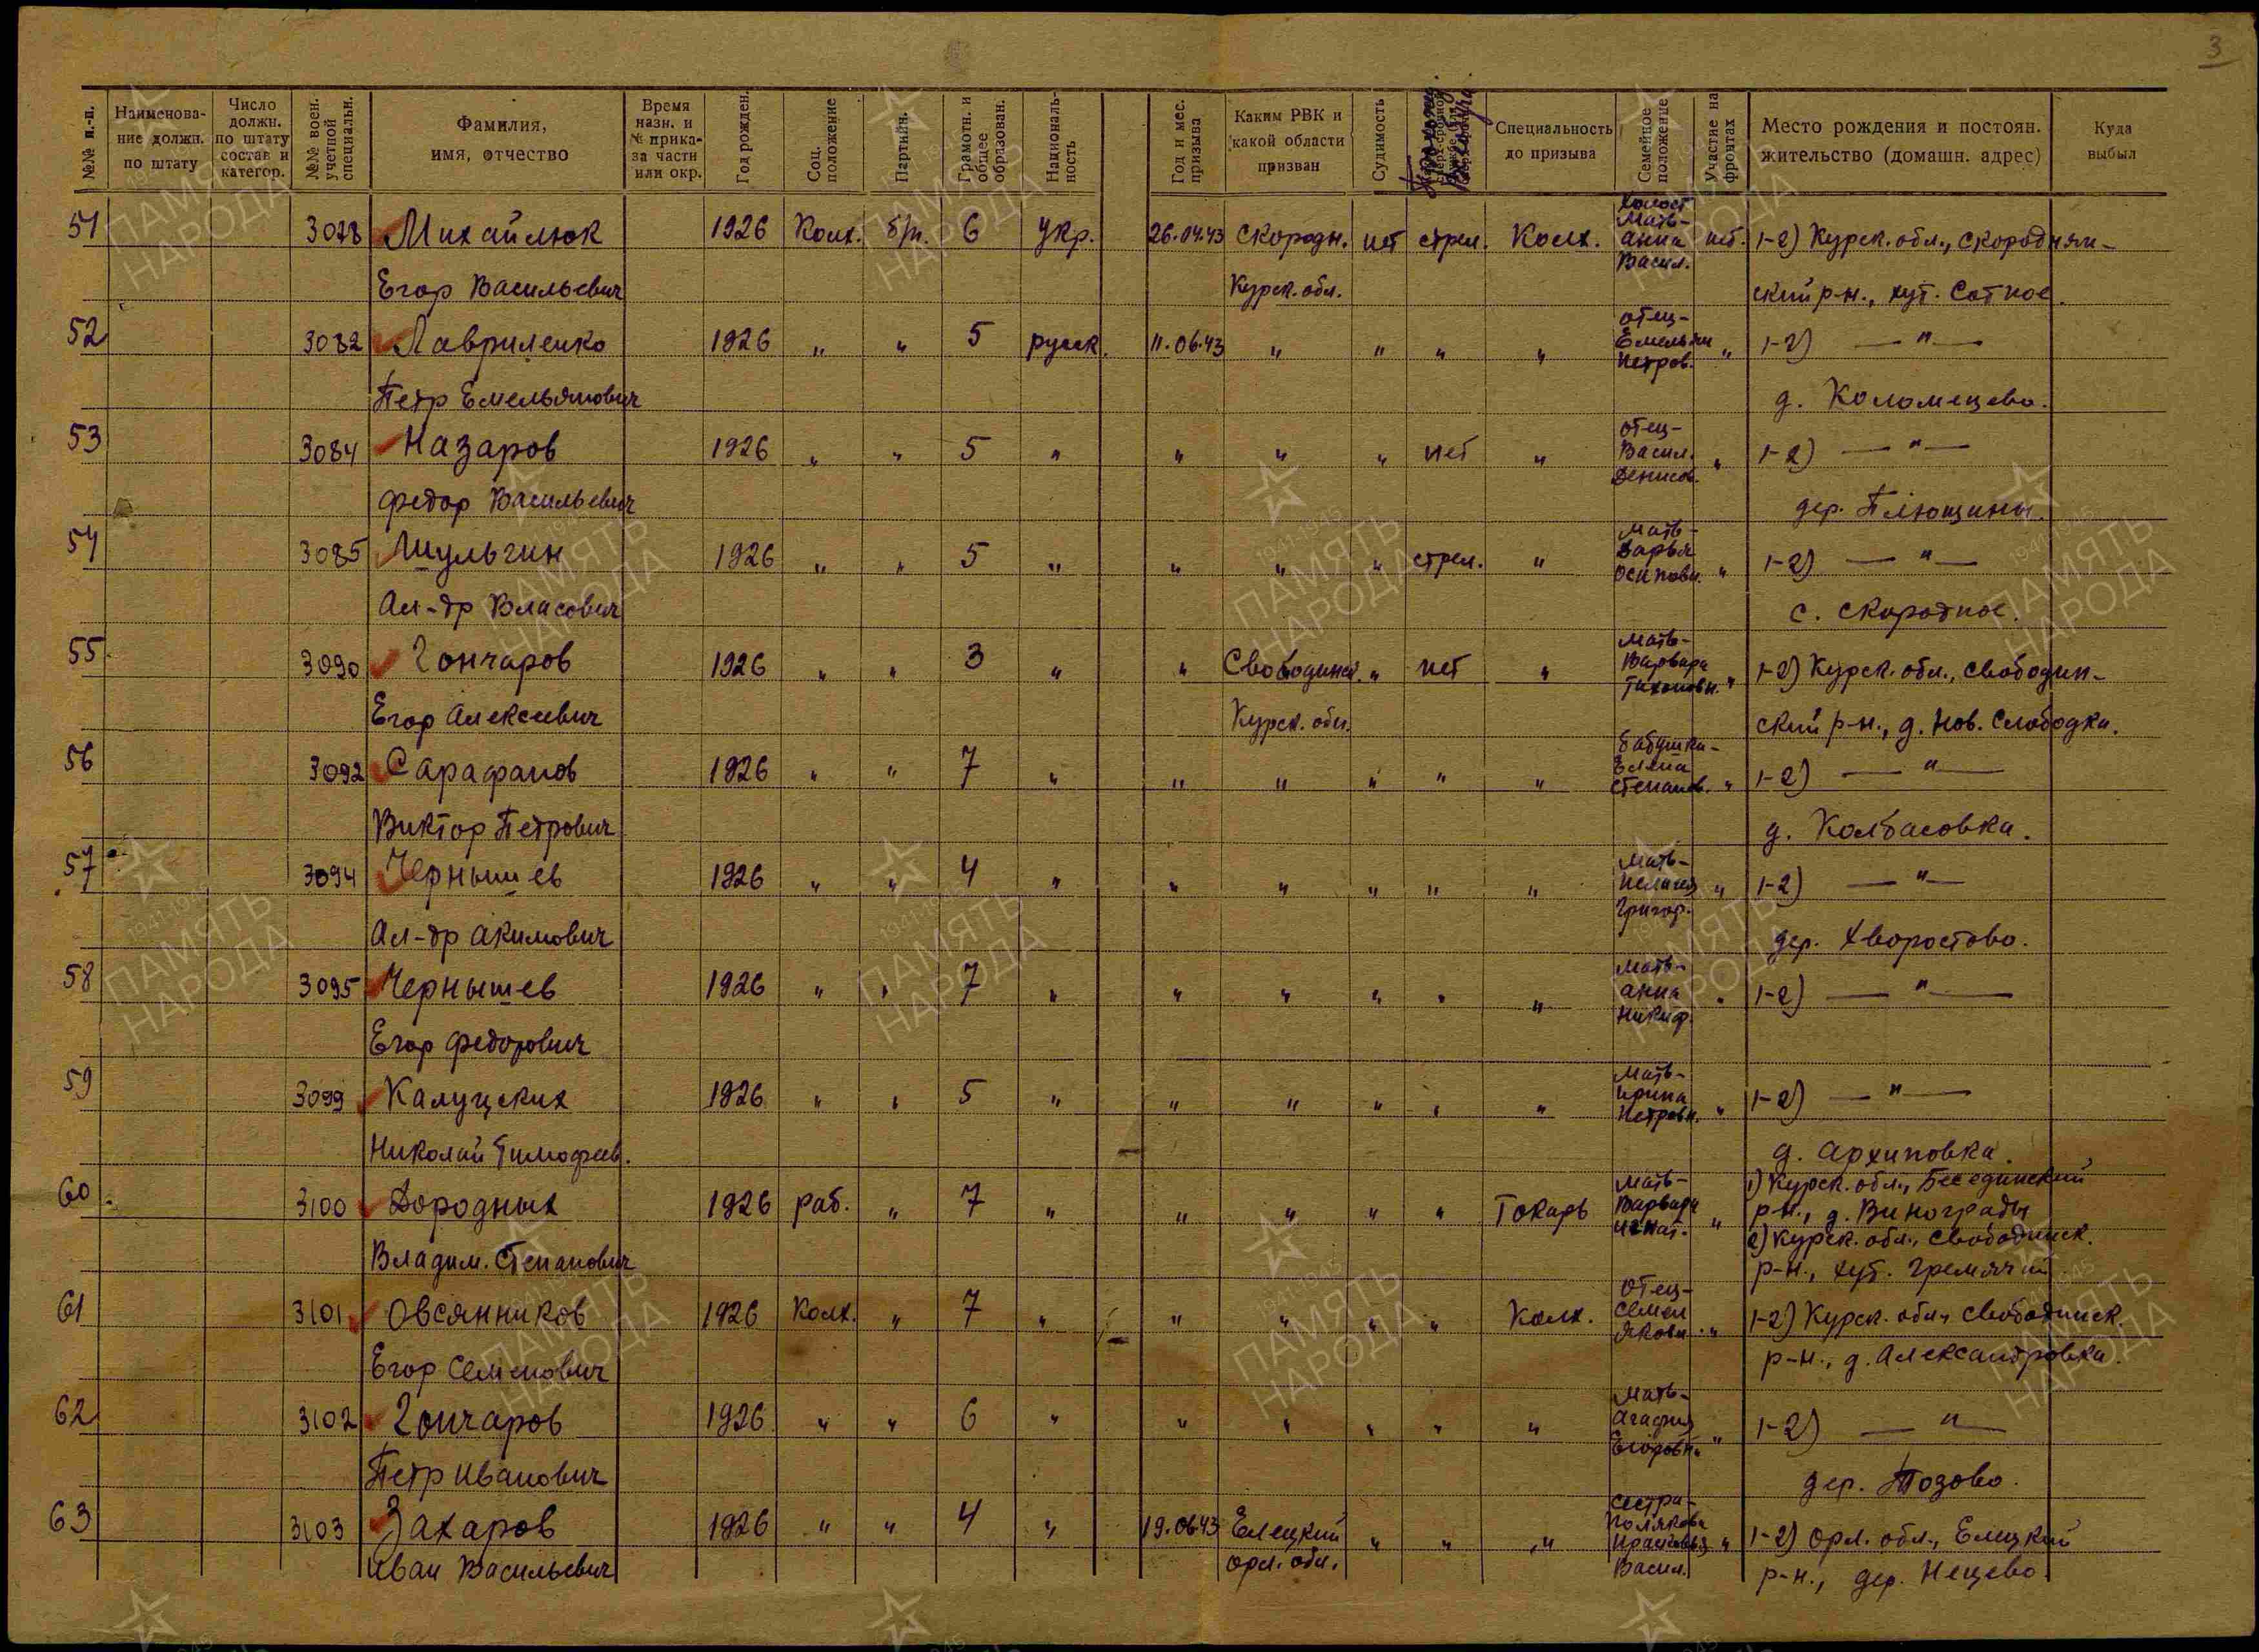 3
№№ п.-п.
Наименова-
ние должн.
по штату
Число
должн.
по штату
состав и
категор.
№№ воен.
учетной
специальн.
Фамилия,
имя, отчество
Время
назн. и
№ прика-
за части
или окр.
Год рожден.
Соц.
положение
Партийн.
Грамотн. и
общее
образован.
Националь-
ность
Год и мес.
призыва
Каким РВК и
какой области
призван
Судимость
Специальность
до призыва
Семейное
положение
Участие на
фронтах
Место рождения и постоян.
жительство (домашн. адрес)
Куда
выбыл
51 3078 Михайлюк 1926 Колх. б/п. 6 укр. 26.04.43 Скородн. нет стрел. Колх. холост Мать- анна Васил. нет. 1-2) Курск. обл., Скороднян-
Егор Васильевич Курск. обл. ский р-н., хут. Сотное.
52 3082 Лавриленко 1926 „ „ 5 русск. 11.06.43 „ „ „ „ отец- Емельян Петров. „ 1-2) — " —
Петр Емельянович д. Коломецево.
53 3084 Назаров 1926 „ „ 5 „ „ „ „ нет „ отец- Васил. Денисов. „ 1-2) — " —
Федор Васильевич дер. Плющины.
54 3085 Шульгин 1926 „ „ 5 „ „ „ „ стрел. „ Мать- Дарья Осиповн. „ 1-2) — " —
Ал-др Власович с. Скородное.
55 3090 Гончаров 1926 „ „ 3 „ „ Свободинск. „ нет „ Мать- Варвара Тихоновн. „ 1-2) Курск. обл., Свободин-
Егор Алексеевич Курск. обл. ский р-н., д. Нов. Слободка.
56 3092 Сарафанов 1926 „ „ 7 „ „ „ „ „ „ бабушка- Елена Степанов. „ 1-2) — " —
Виктор Петрович д. Колбасовка.
57 3094 Чернышев 1926 „ „ 4 „ „ „ „ „ „ Мать- Пелагея Григор. „ 1-2) — " —
Ал-др Акимович дер. Хворостово.
58 3095 Чернышев 1926 „ „ 7 „ „ „ „ „ „ Мать- анна Никиф. „ 1-2) — " —
Егор Федорович
59 3099 Калуцких 1926 „ „ 5 „ „ „ „ „ „ Мать- Ирина Петровн. „ 1-2) — " —
Николай Тимофеев. д. Архиповка.
60 3100 Дородных 1926 раб. „ 7 „ „ „ „ „ Токарь Мать- Варвара Игнат. „ 1) Курск. обл., Беседнский
р-н., д. Винограды
Владим. Степанович 2) Курск. обл., Свободинск.
р-н., хут. Гремячий
61 3101 Овсянников 1926 Колх. „ 7 „ „ „ „ „ Колх. отец- Семен Яковл. „ 1-2) Курск. обл., Свободинск.
Егор Семенович р-н., д. Александровка.
62 3102 Гончаров 1926 „ „ 6 „ „ „ „ „ „ Мать- Агафия Егоровн. „ 1-2) — " —
Петр Иванович дер. Тозово.
63 3103 Захаров 1926 „ „ 4 „ 19.06.43 Елецкий „ „ „ сестра- Полякова Прасковья Васил. „ 1-2) Орл. обл., Елецкий
Иван Васильевич Орл. обл. р-н., дер. Нецево.
ПАМЯТЬ НАРОДА
1941-1945